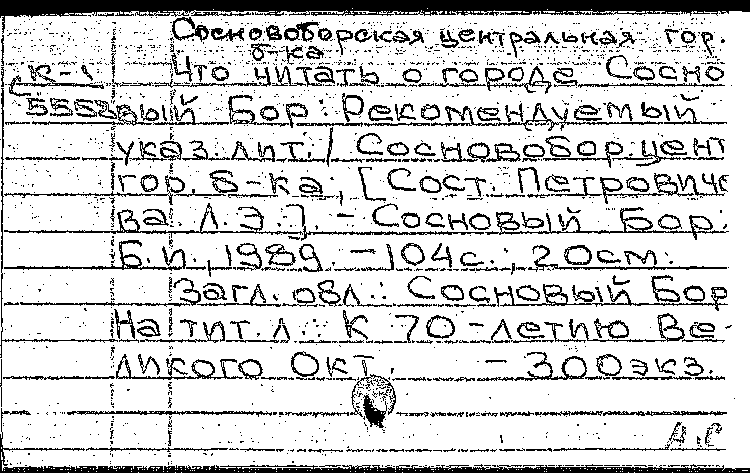 Сосновоборская центральная гор.
б-ка
К-1 Что читать о городе Сосно
5552 вый Бор: Рекомендуемый
указ. лит. / Сосновобор. цент
гор. б-ка; [Сост. Петрович
ва Л.Э.]. - Сосновый Бор:
Б.и., 1989. - 104 с.; 20 см.
Загл. обл.: Сосновый Бор
На тит. л.: К 70-летию Ве-
ликого Окт. - 300 экз.
А.С